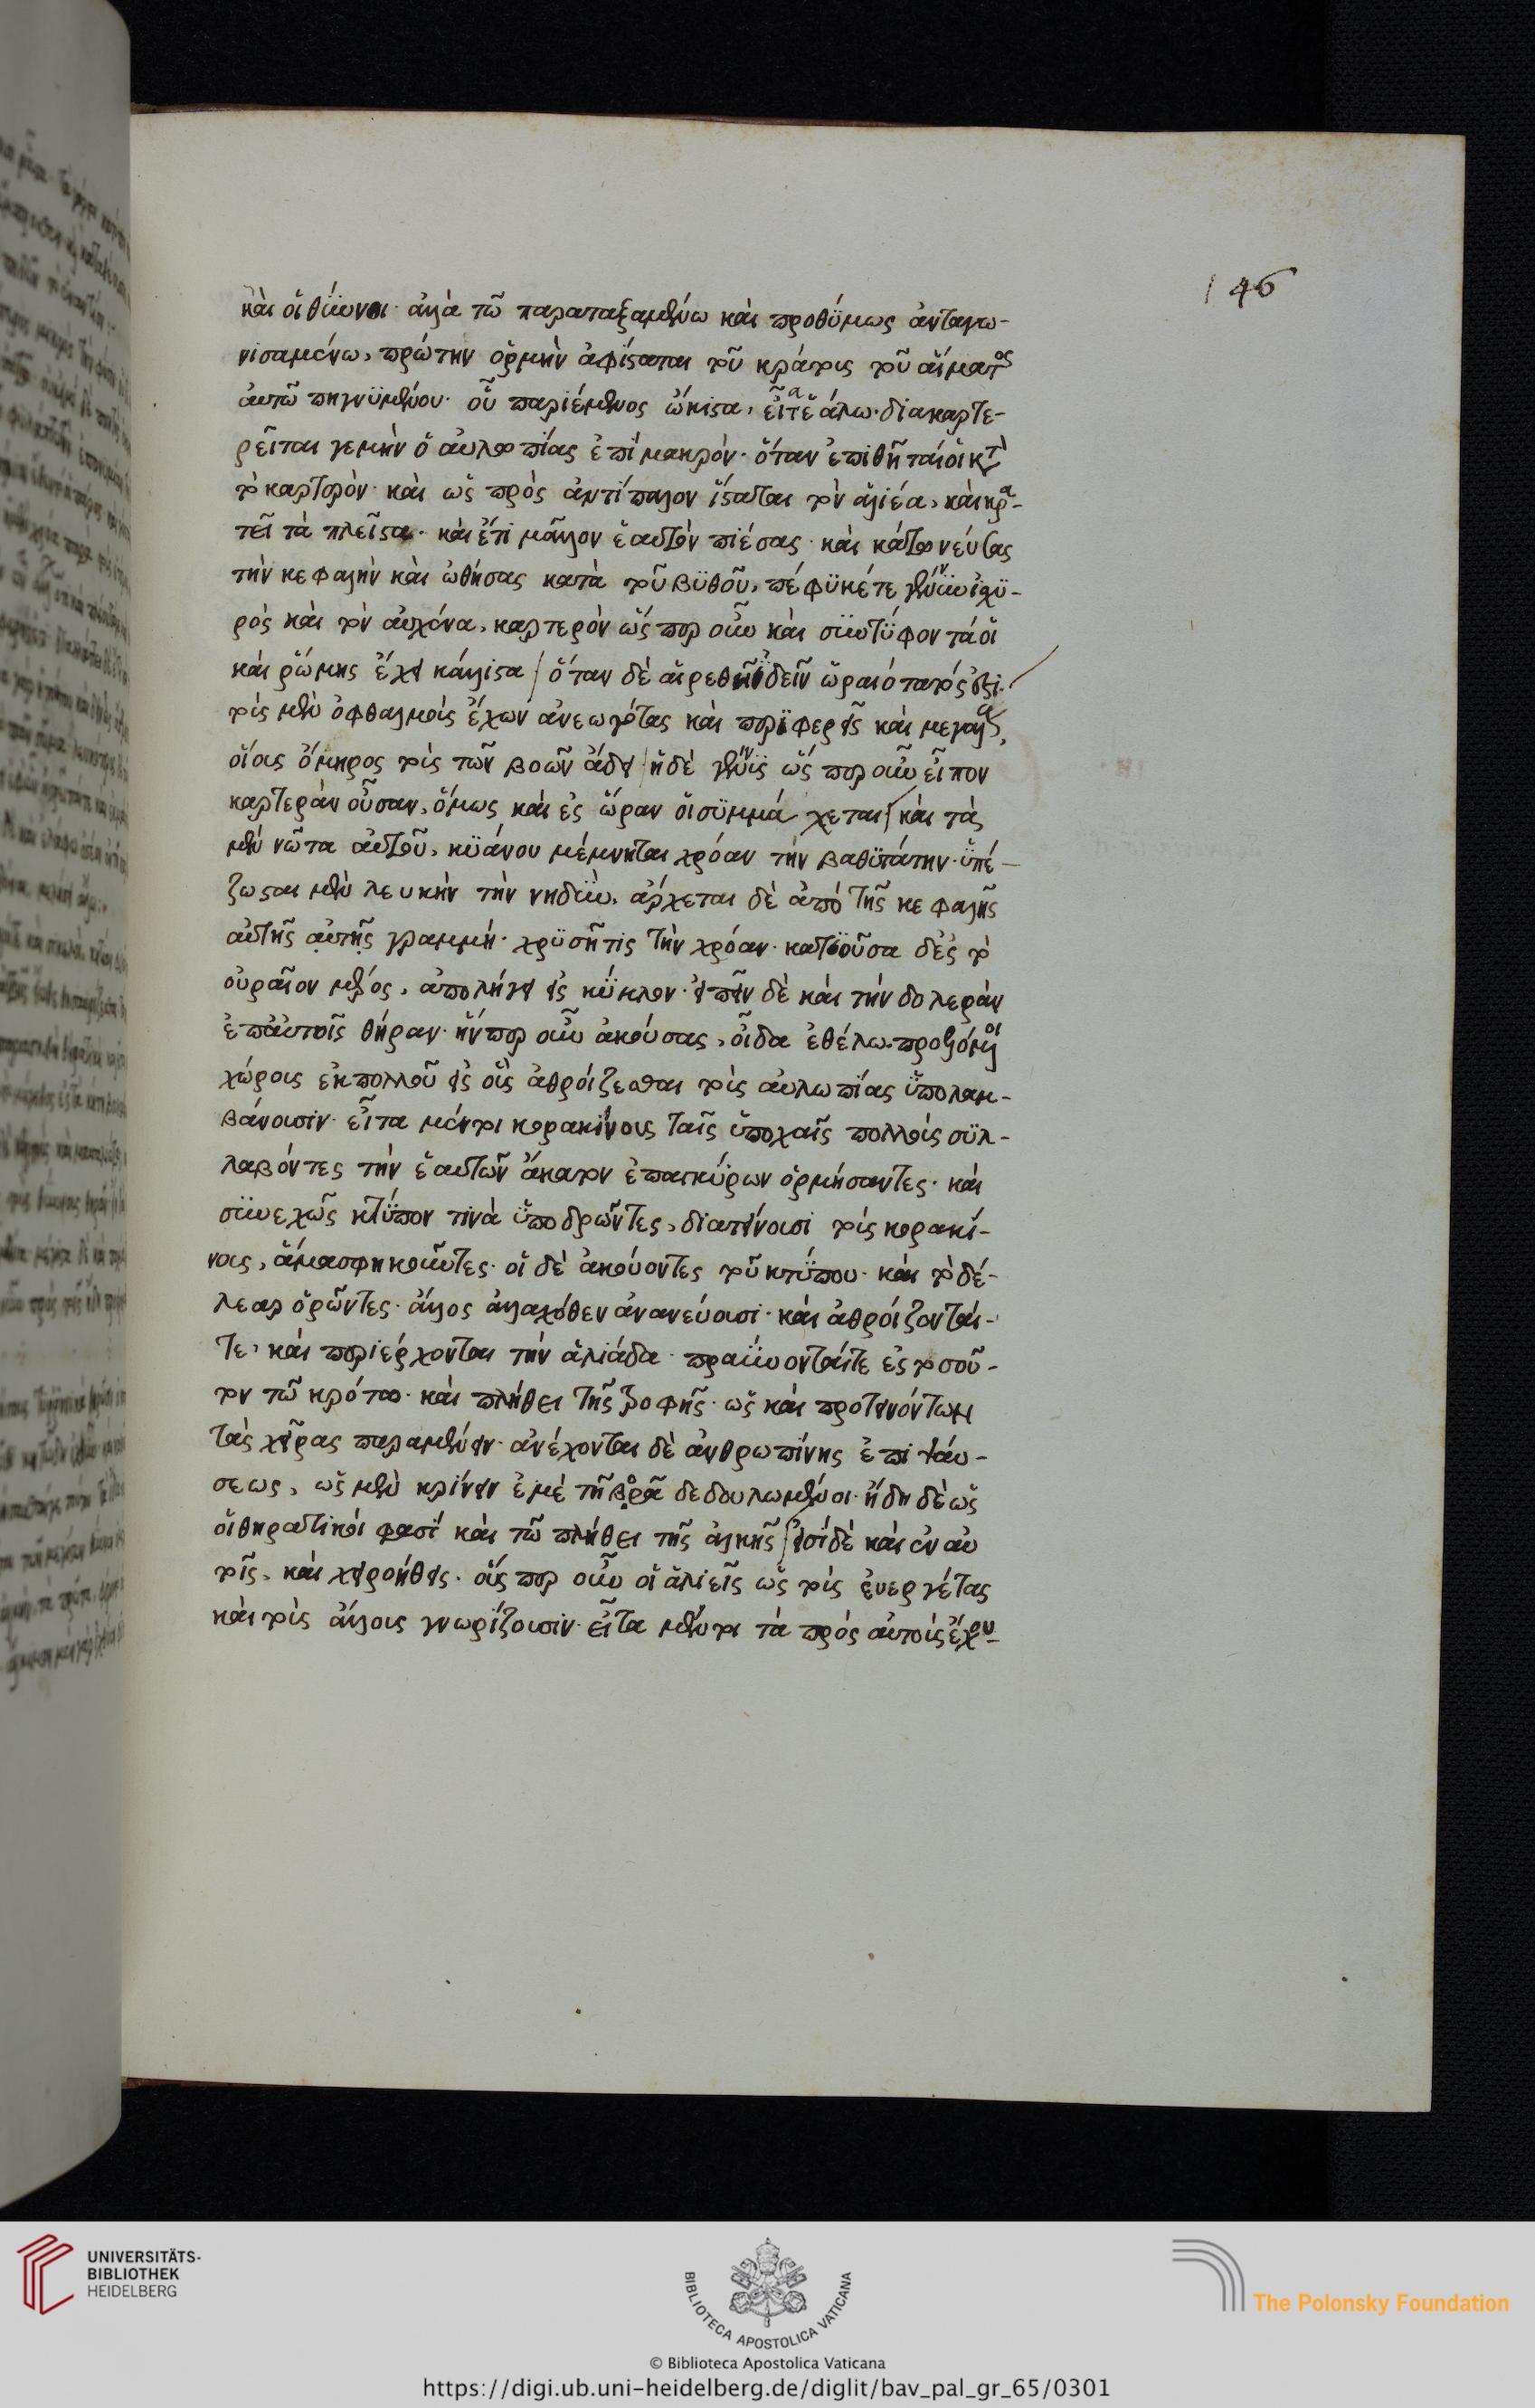 146
καὶ οἱ θύννοι· ἀλλὰ τῶ παραταξαμένω καὶ προθύμως ἀνταγω-
νισαμένω, πρώτην ὁρμὴν ἀφίσαται τοῦ κράτους τοῦ αἵματος
αὐτῶ πηγνυμένου· οὗ παριέμενος ὤκιστα, εἶτα ἑάλω· διακαρτε-
ρεῖται γεμὴν ὁ αὐλωπίας ἐπὶ μακρόν· ὅταν ἐπιθῆται οἱ κατὰ
τὸ καρτερὸν· καὶ ὡς πρὸς ἀντίπαλον ἵσταται τὸν ἁλιέα, καὶ κρα-
τεῖ τὰ πλεῖστα· καὶ ἔτι μᾶλλον ἑαυτὸν πιέσας· καὶ κάτω νεύσας
τὴν κεφαλὴν καὶ ὠθήσας κατὰ τοῦ βυθοῦ, πέφυκέ τε γένυν ἰσχυ-
ρὸς καὶ τὸν αὐχένα, καρτερὸν ὥσπερ οὖν καὶ συντύφονται οἱ
καὶ ῥώμης ἔχει κάλλιστα / ὅταν δὲ αἱρεθῆ ἰδεῖν ὡραιότατός ἐστι·
τοὺς μὲν ὀφθαλμοὺς ἔχων ἀνεωγότας καὶ περιφερεῖς καὶ μεγάλους,
οἵους ὅμηρος τοὺς τῶν βοῶν ἄδει / ἡ δὲ γένυς ὥσπερ οὖν εἶπον
καρτερὰν οὖσαν, ὅμως καὶ ἐς ὥραν οἱ συμμάχεται / καὶ τὰ
μὲν νῶτα αὐτοῦ, κυάνου μέμνηται χρόαν τὴν βαθυτάτην· ὑπέ-
ζωσται μὲν λευκὴν τὴν νηδὺν, ἄρχεται δὲ ἀπὸ τῆς κεφαλῆς
αὐτῆς αὐτῆς γραμμή· χρυσῆτις τὴν χρόαν· κατιοῦσα δ' ἐς τὸ
οὐραῖον μέρος, ἀπολήγει εἰς κύκλον· εἰπεῖν δὲ καὶ τὴν δολερὰν
ἐπ' αὐτοῖς θήραν· ἥνπερ οὖν ἀκούσας, οἶδα ἐθέλω·
χώρους ἐκ πολλοῦ εἰς οὓς ἀθροίζεσθαι τοὺς αὐλωπίας ὑπολαμ-
βάνουσιν· εἶτα μέντοι κορακίνους ταῖς ὑποχαῖς πολλοὺς συλ-
λαβόντες τὴν ἑαυτῶν ἄκατον ὁρμήσαντες· καὶ
συνεχῶς κτύπον τινὰ ὑποδρῶντες, διατείνουσι τοὺς κορακί-
νους, οἱ δὲ ἀκούοντες τοῦ κτύπου· καὶ τὸ δέ-
λεαρ ὁρῶντες· ἄλλος ἀλλαχόθεν ἀνανεύουσι· καὶ ἀθροίζονταί-
τε· καὶ περιέρχονται τὴν ἁλιάδα· πραΰνονταί τε ἐς τοσοῦ-
τον τῶ κρότω· καὶ πλήθει τῆς τροφῆς· ὡς καὶ προτεινόντων
τὰς χεῖρας παραμένειν· ἀνέχονται δὲ ἀνθρωπίνης ἐπιψαύ-
σεως, ὡς μὲν κρίνειν ἐμὲ τῆ βορᾶ δεδουλωμένοι· ἤδη δὲ ὡς
οἱ θηρατικοί φασί καὶ τῶ πλήθει τῆς ἀλκῆς / εἰσὶ δὲ καὶ ἐν αὐ
τοῖς, καὶ χειροήθεις· οὕς περ οὖν οἱ ἁλιεῖς ὡς τοὺς εὐεργέτας
καὶ τοὺς ἄλλους γνωρίζουσιν· εἶτα μέντοι τὰ πρὸς αὐτοὺς ἔχου-
UNIVERSITÄTS-
BIBLIOTHEK
HEIDELBERG
BIBLIOTECA APOSTOLICA VATICANA
The Polonsky Foundation
© Biblioteca Apostolica Vaticana
https://digi.ub.uni-heidelberg.de/diglit/bav_pal_gr_65/0301